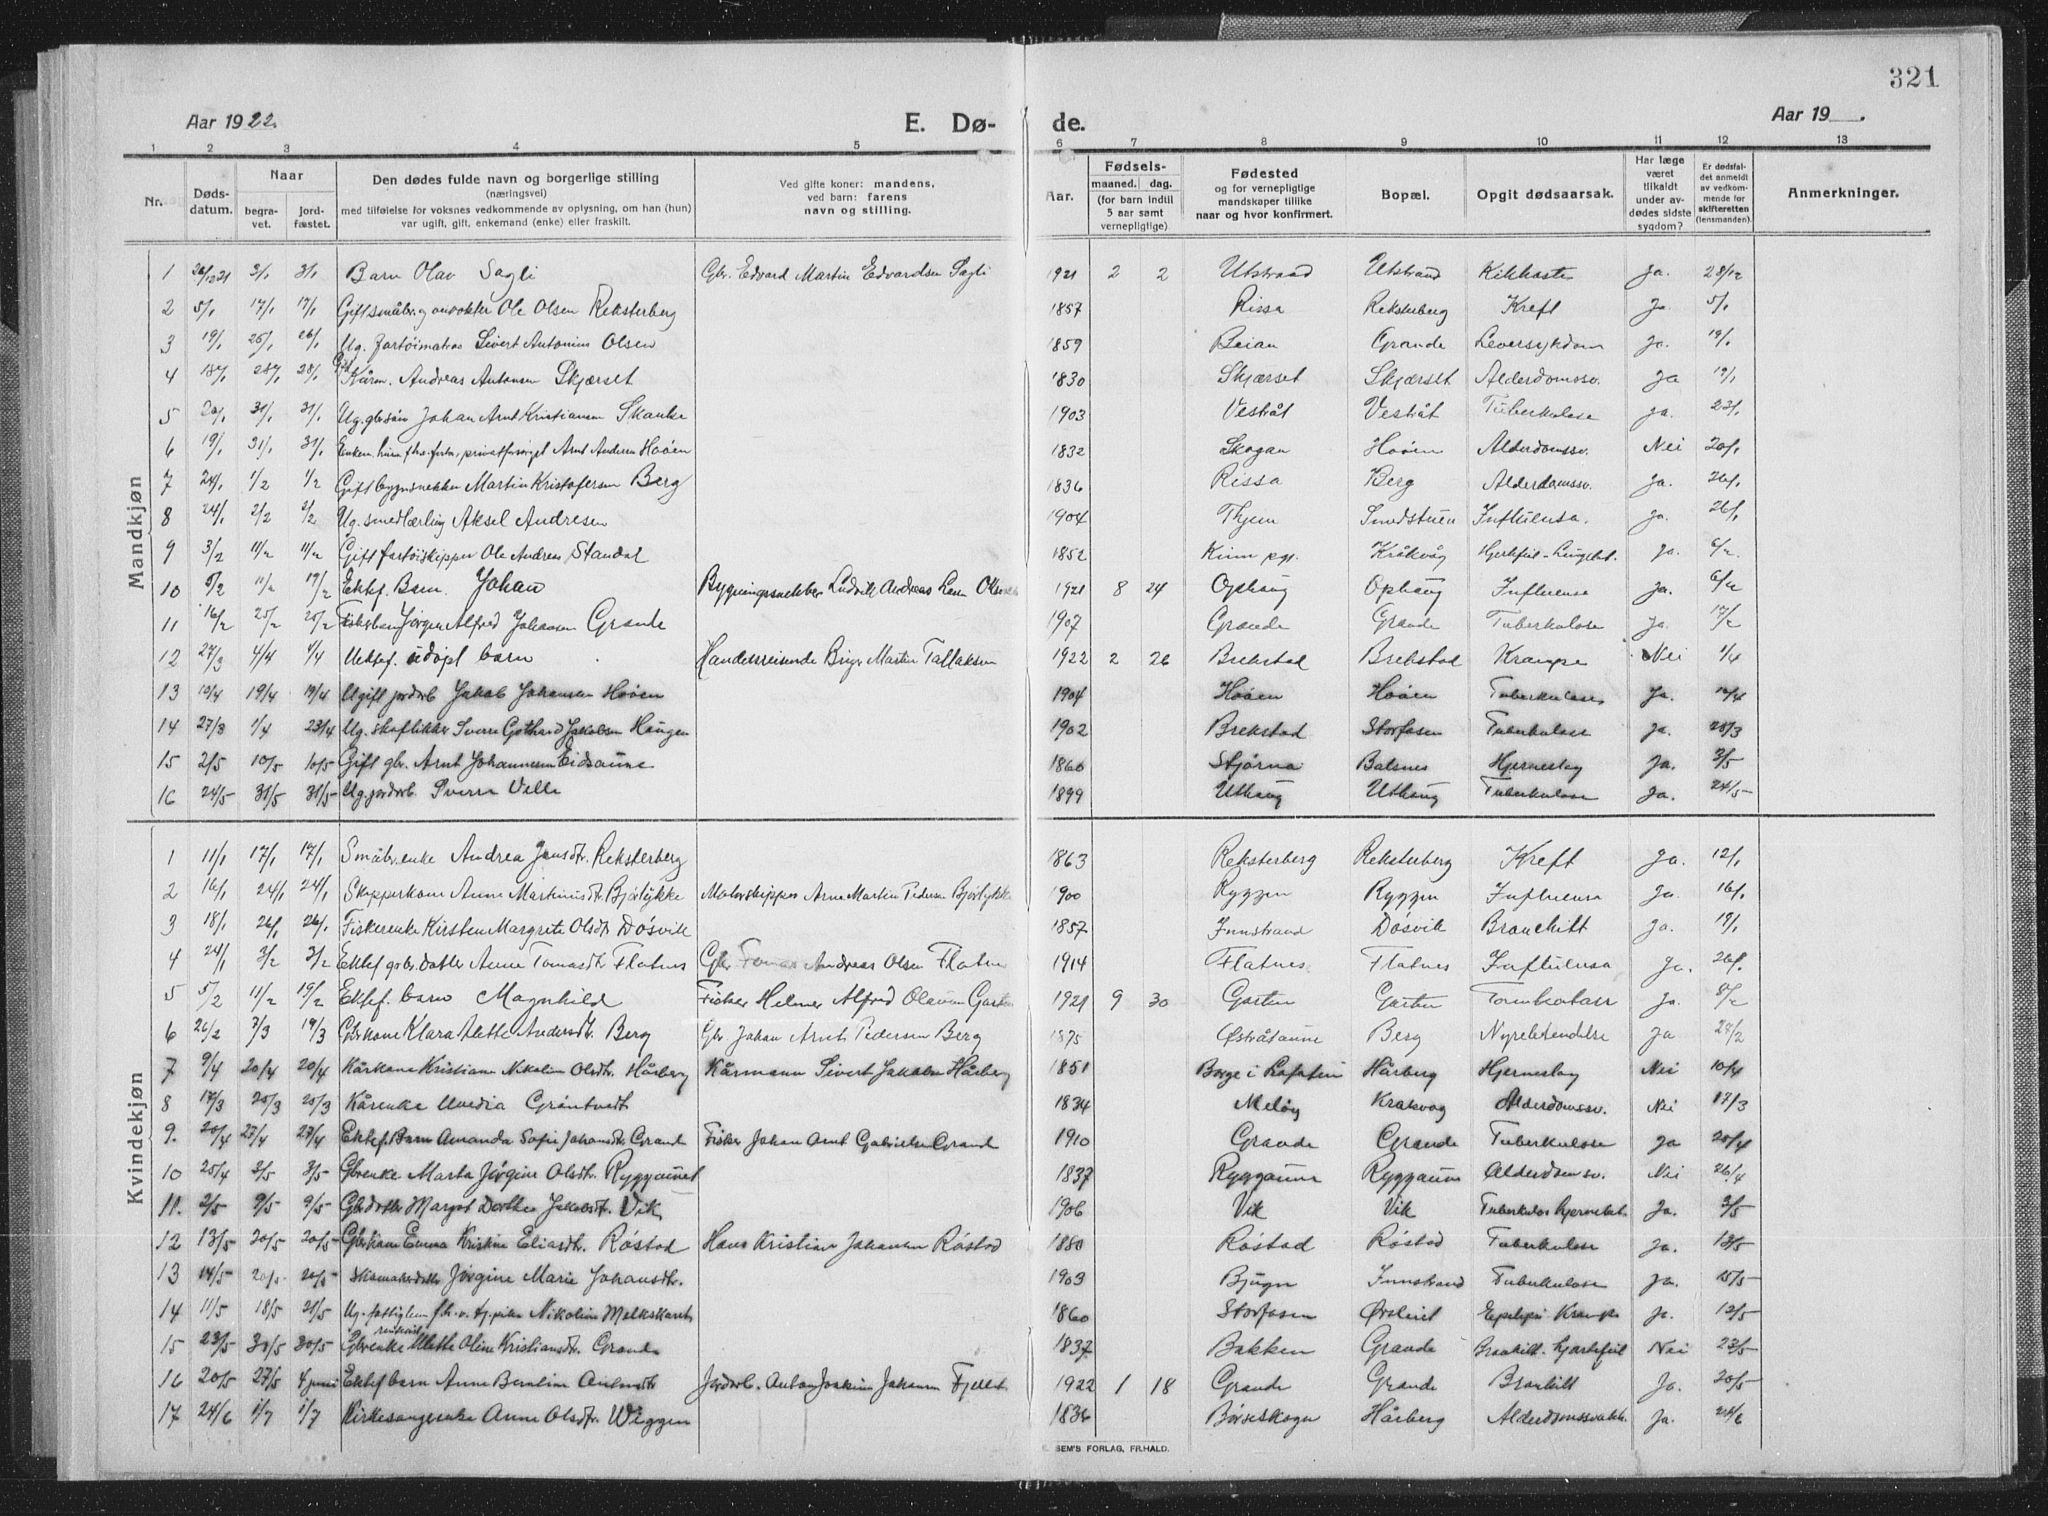 321
Aar 1922. E. Dø- de. Aar 19 .
1 2 3 4 5 6 7 8 9 10 11 12 13
Nr. Døds-datum. Naar begra-vet. jord-fæstet. Den dødes fulde navn og borgerlige stilling (næringsvei) med tilføielse for voksnes vedkommende av oplysning, om han (hun) var ugift, gift, enkemand (enke) eller fraskilt. Ved gifte koner: mandens, ved barn: farens navn og stilling. Aar. Fødsels- maaned. dag. (for barn indtil 5 aar samt vernepligtige) Fødested og for vernepligtige mandskaper tillike naar og hvor konfirmert. Bopæl. Opgit dødsaarsak. Har læge været tilkaldt under av-dødes sidste sygdom? Er dødsfal-det anmeldt av vedkom-mende for skifteretten (lensmanden). Anmerkninger.
Mandkjøn
1 26/12 21 3/1 3/1 Barn Olav Sagli Gbr. Edvard Martin Edvardsen Sagli 1921 2 2 Utstrand Utstrand Kikhoste Ja. 28/12
2 5/1 17/1 17/1 Gift småbr. og Ole Olsen Reksterberg 1857 Rissa Reksterberg Kreft Ja 5/1
3 19/1 26/1 26/1 Ug. fartøimatros Sivert Antonius Olsen 1859 Beian Grande Leversykdom Ja. 19/1
4 18/1 28/1 28/1 Gift Kårm. Andreas Antonsen Skjærset 1830 Skjærset Skjærset Alderdomssv. Ja 19/1
5 20/1 31/1 31/1 Ug. gbrsøn Johan Arnt Kristiansen Skanke 1903 Vestråt Vestråt Tuberkulose Ja. 23/1
6 19/1 31/1 31/1 Enkem. privatforsørget Arnt Andersen Hoøen 1832 Skogan Hoøen Alderdomssv. Nei 20/1
7 24/1 1/2 1/2 Gift bygnsnekker Martin Kristofersen Berg 1836 Rissa Berg Alderdomssv. Ja. 26/1
8 24/1 2/2 2/2 Ug. smedlærling Aksel Andresen 1904 Thjem Smedstuen Influensa. Ja. 26/1
9 3/2 11/2 11/2 Gift fartøiskipper Ole Andreas Standal 1852 Kinn pgj. Kråkvåg Hjertefeil - Ja. 6/2
10 5/2 11/2 19/2 Ektef. Barn. Johan Bygningssnekker Ludvik Andreas 1921 8 24 Ophaug Ophaug Influensa Ja. 6/2
11 16/2 25/2 25/2 Fiskerbarn Jørgen Alfred Johansen Grande 1907 Grande Grande Tuberkulose Ja. 17/2
12 27/3 4/4 4/4 Uektef. udøpt barn Handelsreisende Birger Martin Tallaksen 1922 2 26 Brekstad Brekstad Krampe Nei 1/4
13 10/4 19/4 19/4 Ugift jordarb Jakob Johansen Hoøen 1904 Hoøen Hoøen Tuberkulose Ja. 12/4
14 27/3 1/4 23/4 Ug. Sverre Gothard Jakobsen Haugen 1902 Brekstad Storfosen Tuberkulose Ja. 28/3
15 2/5 10/5 10/5 Gift gbr. Arnt Johannesen Eidsaune 1860 Stjørna Balsnes Hjerneslag Ja. 3/5
16 24/5 31/5 31/5 Ug. jordarb. Sverre Velle 1899 Uthaug Uthaug Tuberkulose Ja. 24/5
Kvindekjøn
1 11/1 17/1 17/1 Småbr.enke Andrea Jensdtr. Reksterberg 1863 Reksterberg Reksterberg Kreft Ja. 12/1
2 16/1 24/1 24/1 Skipperkone Anne Martinusdtr Bjørlykke Motorskipper Arne Martin Pedersen Bjørlykke 1900 Ryggen Ryggen Influensa Ja 16/1
3 18/1 26/1 26/1 Fiskerenke Kirsten Margrete Olsdtr Døsvik 1857 Innstrand Døsvik Bronchitt Ja. 19/1
4 24/1 3/2 3/2 Ektef gbr.datter Anne Tomasdtr Flatnes Gbr Tomas Andreas Olsen Flatnes 1914 Flatnes Flatnes Influensa Ja. 26/1
5 5/2 11/2 19/2 Ektef. barn Magnhild Fisker Helmer Alfred Olausen Garten 1921 9 30 Garten Garten Ja. 8/2
6 26/2 7/3 19/3 Gbrkone Klara Alette Andersdtr. Berg Gbr Johan Arnt Pedersen Berg 1875 Østråtaune Berg Nyrebetendelse Ja 27/2
7 9/4 20/4 20/4 Kårkone Kristiane Nikoline Olsdtr. Hårberg Kårmann Sivert Jakobsen Hårberg 1851 Borge i Lofoten Hårberg Hjerneslag Nei 10/4
8 17/3 25/3 25/3 Kårenke Uvedia Grøntvedt 1834 Meløy Krakvåg Alderdomssv. Nei 17/3
9. 20/4 27/4 27/4 Ektef. Barn Amanda Sofie Johansdtr. Grande Fisker Johan Arnt Gabrielsen Grande 1910 Grande Grande Tuberkulose Ja 25/4
10 25/4 3/5 3/5 Gbrenke. Marta Jørgine Olsdtr. Ryggaunet 1837 Ryggaune Ryggaune Alderdomsv. Nei 26/4
11. 2/5 9/5 9/5 Gbrdatter Margot Dorthea Jakobsdtr. Vik 1906 Vik Vik Tuberkuløs hjernebet. Ja. 3/5
12 13/5 20/5 20/5 Gbrkone Emma Kristine Eliasdtr. Røstad Hans Kristian Johansen Røstad 1880 Røstad Røstad Tuberkulose Ja. 13/5
13 14/5 20/5 20/5 Skomakerdatter Jørgine Marie Johansdtr. 1903 Bjugn Innstrand Tuberkulose Ja. 15/5
14 11/5 18/5 21/5 Ug. fattiglem f.h.v. tj.pike Nikoline Melkskaret 1860 Storfosen Ørslivet Epilepsi Krampe Ja. 12/5
15 23/5 30/5 30/5 Gbrenke Alette Oline Kristiansdtr. Grande 1837 Bakken Grande Bronkitt - hjertefeil Nei 23/5
16 20/5 27/5 4 juni Ektef barn Anne Berntine Antonsdtr Jordarb. Anton Joakim Johansen 1922 1 18 Grande Grande Bronkitt Ja. 20/5
17 24/6 1/7 1/7 Kirkesangerenke Anne Olsdtr. Wiggen 1836 Børseskogn Hårberg Alderdomssvakh. Ja. 24/6
SEM'S FORLAG, FR.HALD.